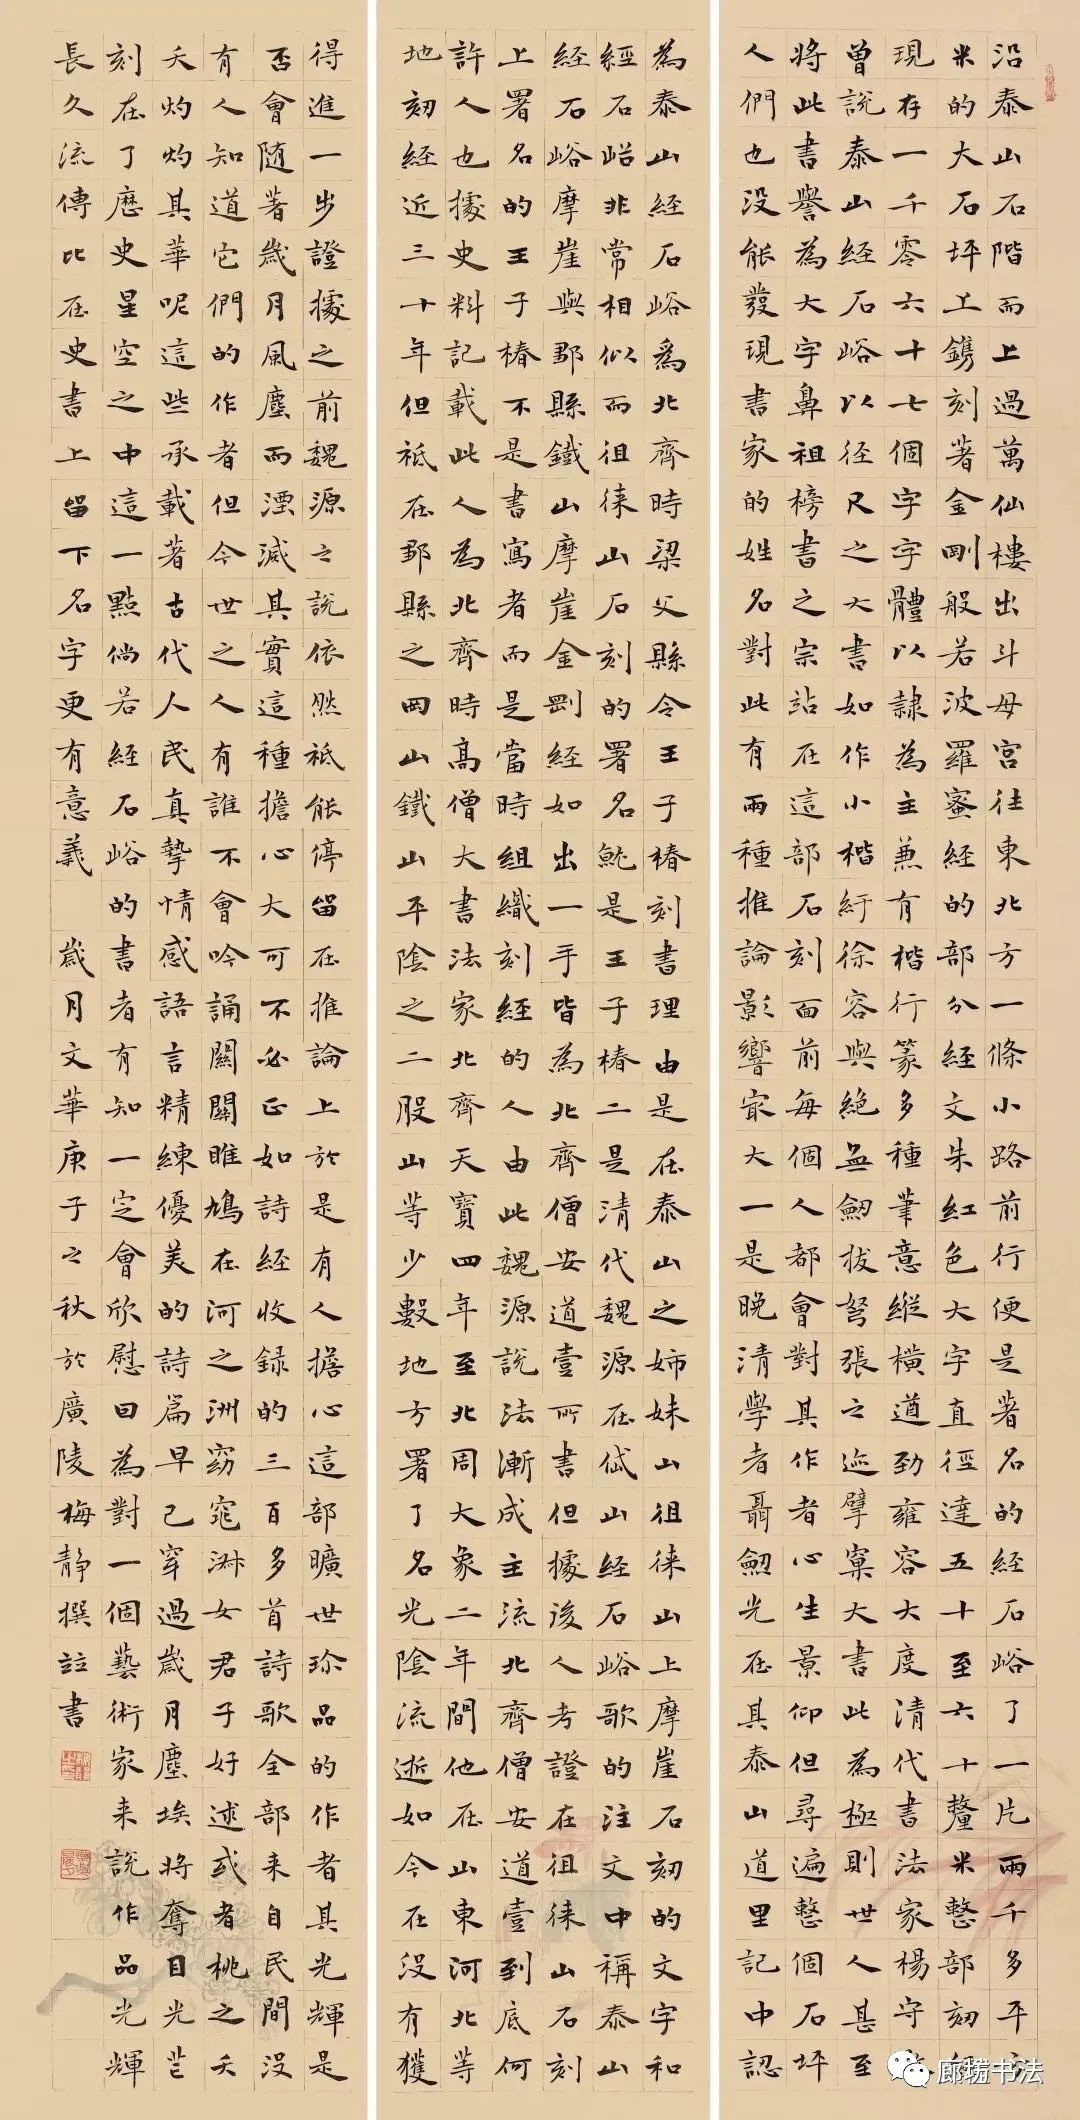 沿泰山石階而上過萬仙樓出斗母宮往東北方一條小路前行便是著名的經石峪了一片兩千多平方
米的大石坪上鐫刻著金剛般若波羅蜜經的部分經文朱紅色大字直徑達五十至六十釐米整部刻經
現存一千零六十七個字字體以隸為主兼有楷行篆多種筆意縱橫遒勁雍容大度清代書法家楊守
曾說泰山經石峪以徑尺之大書如作小楷紆徐容與絕無劍拔弩張之迹擘窠大書此為極則世人甚至
將此書譽為大字鼻祖榜書之宗站在這部石刻面前每個人都會對其作者心生景仰但尋遍整個石坪
人們也沒能發現書家的姓名對此有兩種推論影響最大一是晚清學者聶劍光在其泰山道里記中認
為泰山經石峪為北齊時梁父縣令王子椿刻書理由是在泰山之姊妹山徂徠山上摩崖石刻的文字和
經石峪非常相似而徂徠山石刻的署名就是王子椿二是清代魏源在岱山經石峪歌的注文中稱泰山
經石峪摩崖與鄒縣鐵山摩崖金剛經如出一手皆為北齊僧安道壹所書但據後人考證在徂徠山石刻
上署名的王子椿不是書寫者而是當時組織刻經的人由此魏源說法漸成主流北齊僧安道壹到底何
許人也據史料記載此人為北齊時高僧大書法家北齊天寶四年至北周大象二年間他在山東河北等
地刻經近三十年但祇在鄒縣之岡山鐵山平陰之二股山等少數地方署了名光陰流逝如今在沒有獲
得進一步證據之前魏源之說依然祇能停留在推論上於是有人擔心這部曠世珍品的作者其光輝是
否會隨著歲月風塵而湮滅其實這種擔心大可不必正如詩經收錄的三百多首詩歌全部來自民間沒
有人知道它們的作者但今世之人有誰不會吟誦關關雎鳩在河之洲窈窕淑女君子好逑或者桃之夭
夭灼灼其華呢這些承載著古代人民真摯情感語言精練優美的詩篇早已穿過歲月塵埃將奪目光芒
刻在了歷史星空之中這一點倘若經石峪的書者有知一定會欣慰因為對一個藝術家來說作品光輝
長久流傳比在史書上留下名字更有意義 歲月文華庚子之秋於廣陵梅靜撰並書
书法